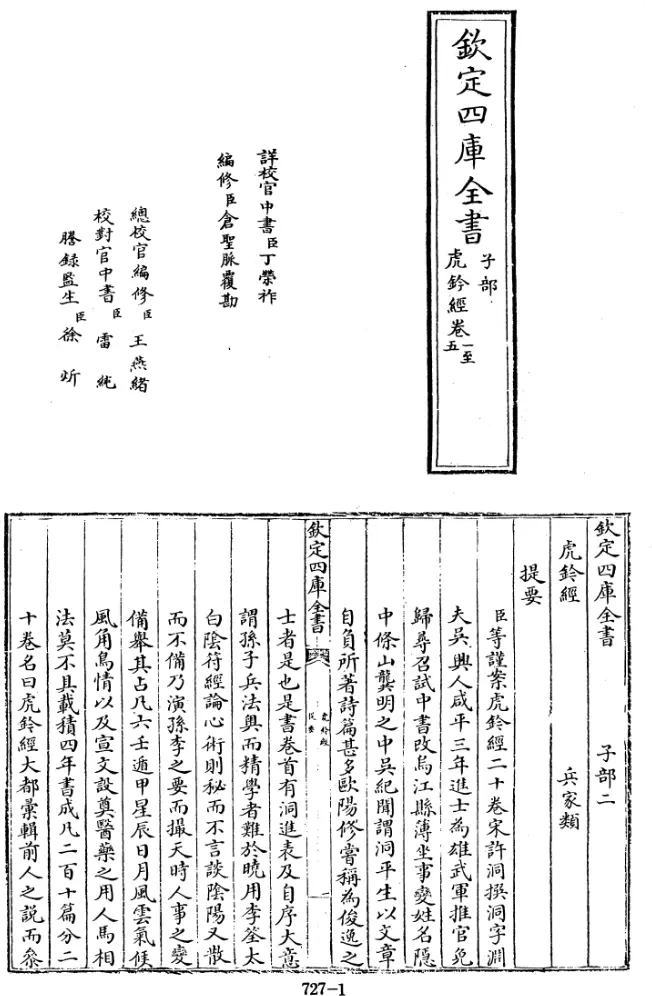 欽定四庫全書
子部
虎鈐經卷一至五
詳校官中書臣丁榮祚
編修臣倉聖脉覆勘
總校官編修臣王燕緒
校對官中書臣雷純
謄録監生臣徐炘
欽定四庫全書 子部二
虎鈐經 兵家類
提要
臣等謹案虎鈐經二十卷宋許洞撰洞字淵
夫吳興人咸平三年進士為雄武軍推官免
歸尋召試中書改烏江縣薄坐事變姓名隱
中條山龔明之中吳紀聞謂洞平生以文章
自負所著詩篇甚多歐陽修嘗稱為俊逸之
欽定四庫全書
虎鈐經
提要
一
士者是也是書卷首有洞進表及自序大意
謂孫子兵法奥而精學者難於曉用李筌太
白陰符經論心術則秘而不言談陰陽又散
而不備乃演孫李之要而撮天時人事之變
備舉其占凡六壬遁甲星辰日月風雲氣候
風角鳥情以及宣文設奠醫藥之用人馬相
法莫不具載積四年書成凡二百十篇分二
十卷名曰虎鈐經大都彙輯前人之説而叅
727-1